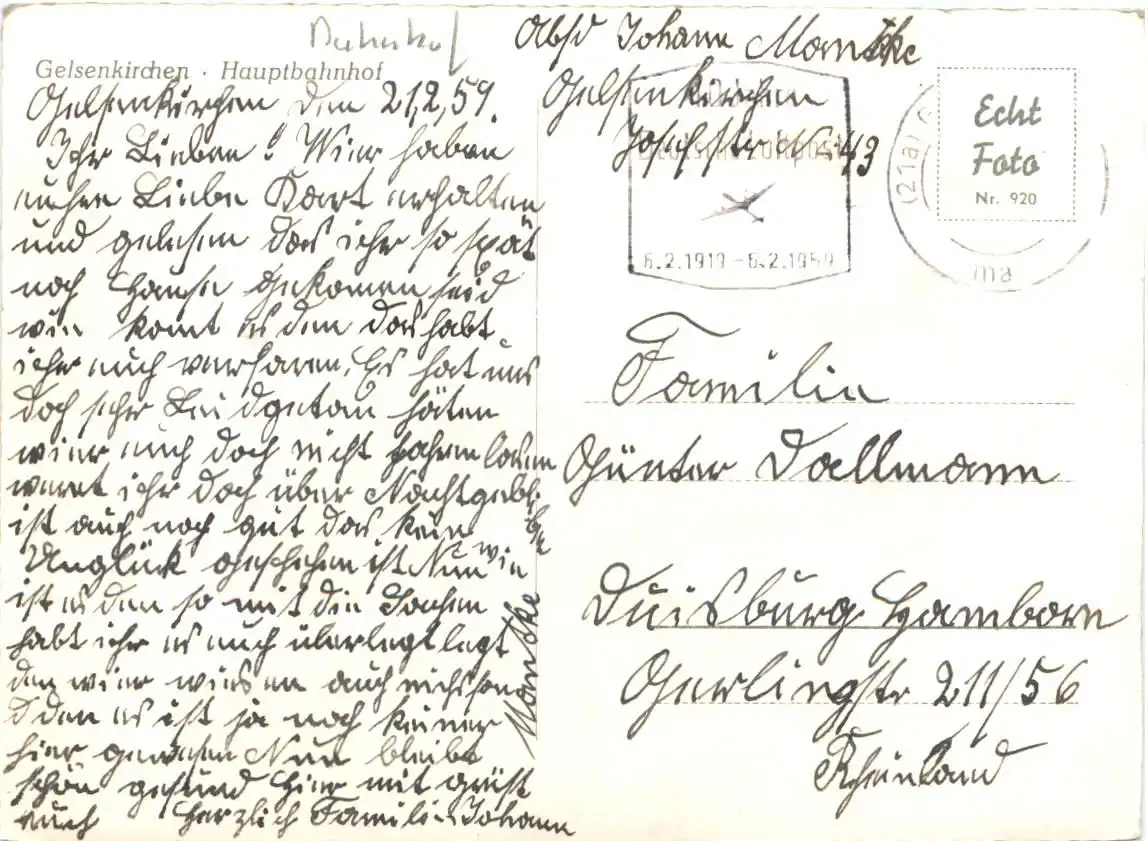 Bahnhof
Gelsenkirchen · Hauptbahnhof
Gelsenkirchen den 21,2,59.
Ihr Lieben! Wier haben
euhre Liebe Kart erhalten
und gelesen das ihr so spät
nach Hause gekomen seid
wie komt es den das habt
ihr euch verfaren, Es hat uns
doch sehr Leidgetan häten
wier euch doch nicht fahren lasen
waret ihr doch über Nachtgeblieben
ist auch noch gut das kein
Unglück geschehen ist Nun wie
ist es den so mit die Sachen
habt ihr es euch überlegt legt
den wier wiesen auch nichts
den es ist ja noch keiner
hier gewesen Nun bleibt
schön gesund Hier mit grüst
euch Herzlich Familie Johann
Manske
Absd Johann Manske
Gelsenkirchen
Josefstr 43
6.2.1919 - 6.2.1959
(21a) G
Echt
Foto
Nr. 920
ma
Familie
Günter Dallmann
Duisburg Hamborn
Gerlingstr 211/56
Rheinland